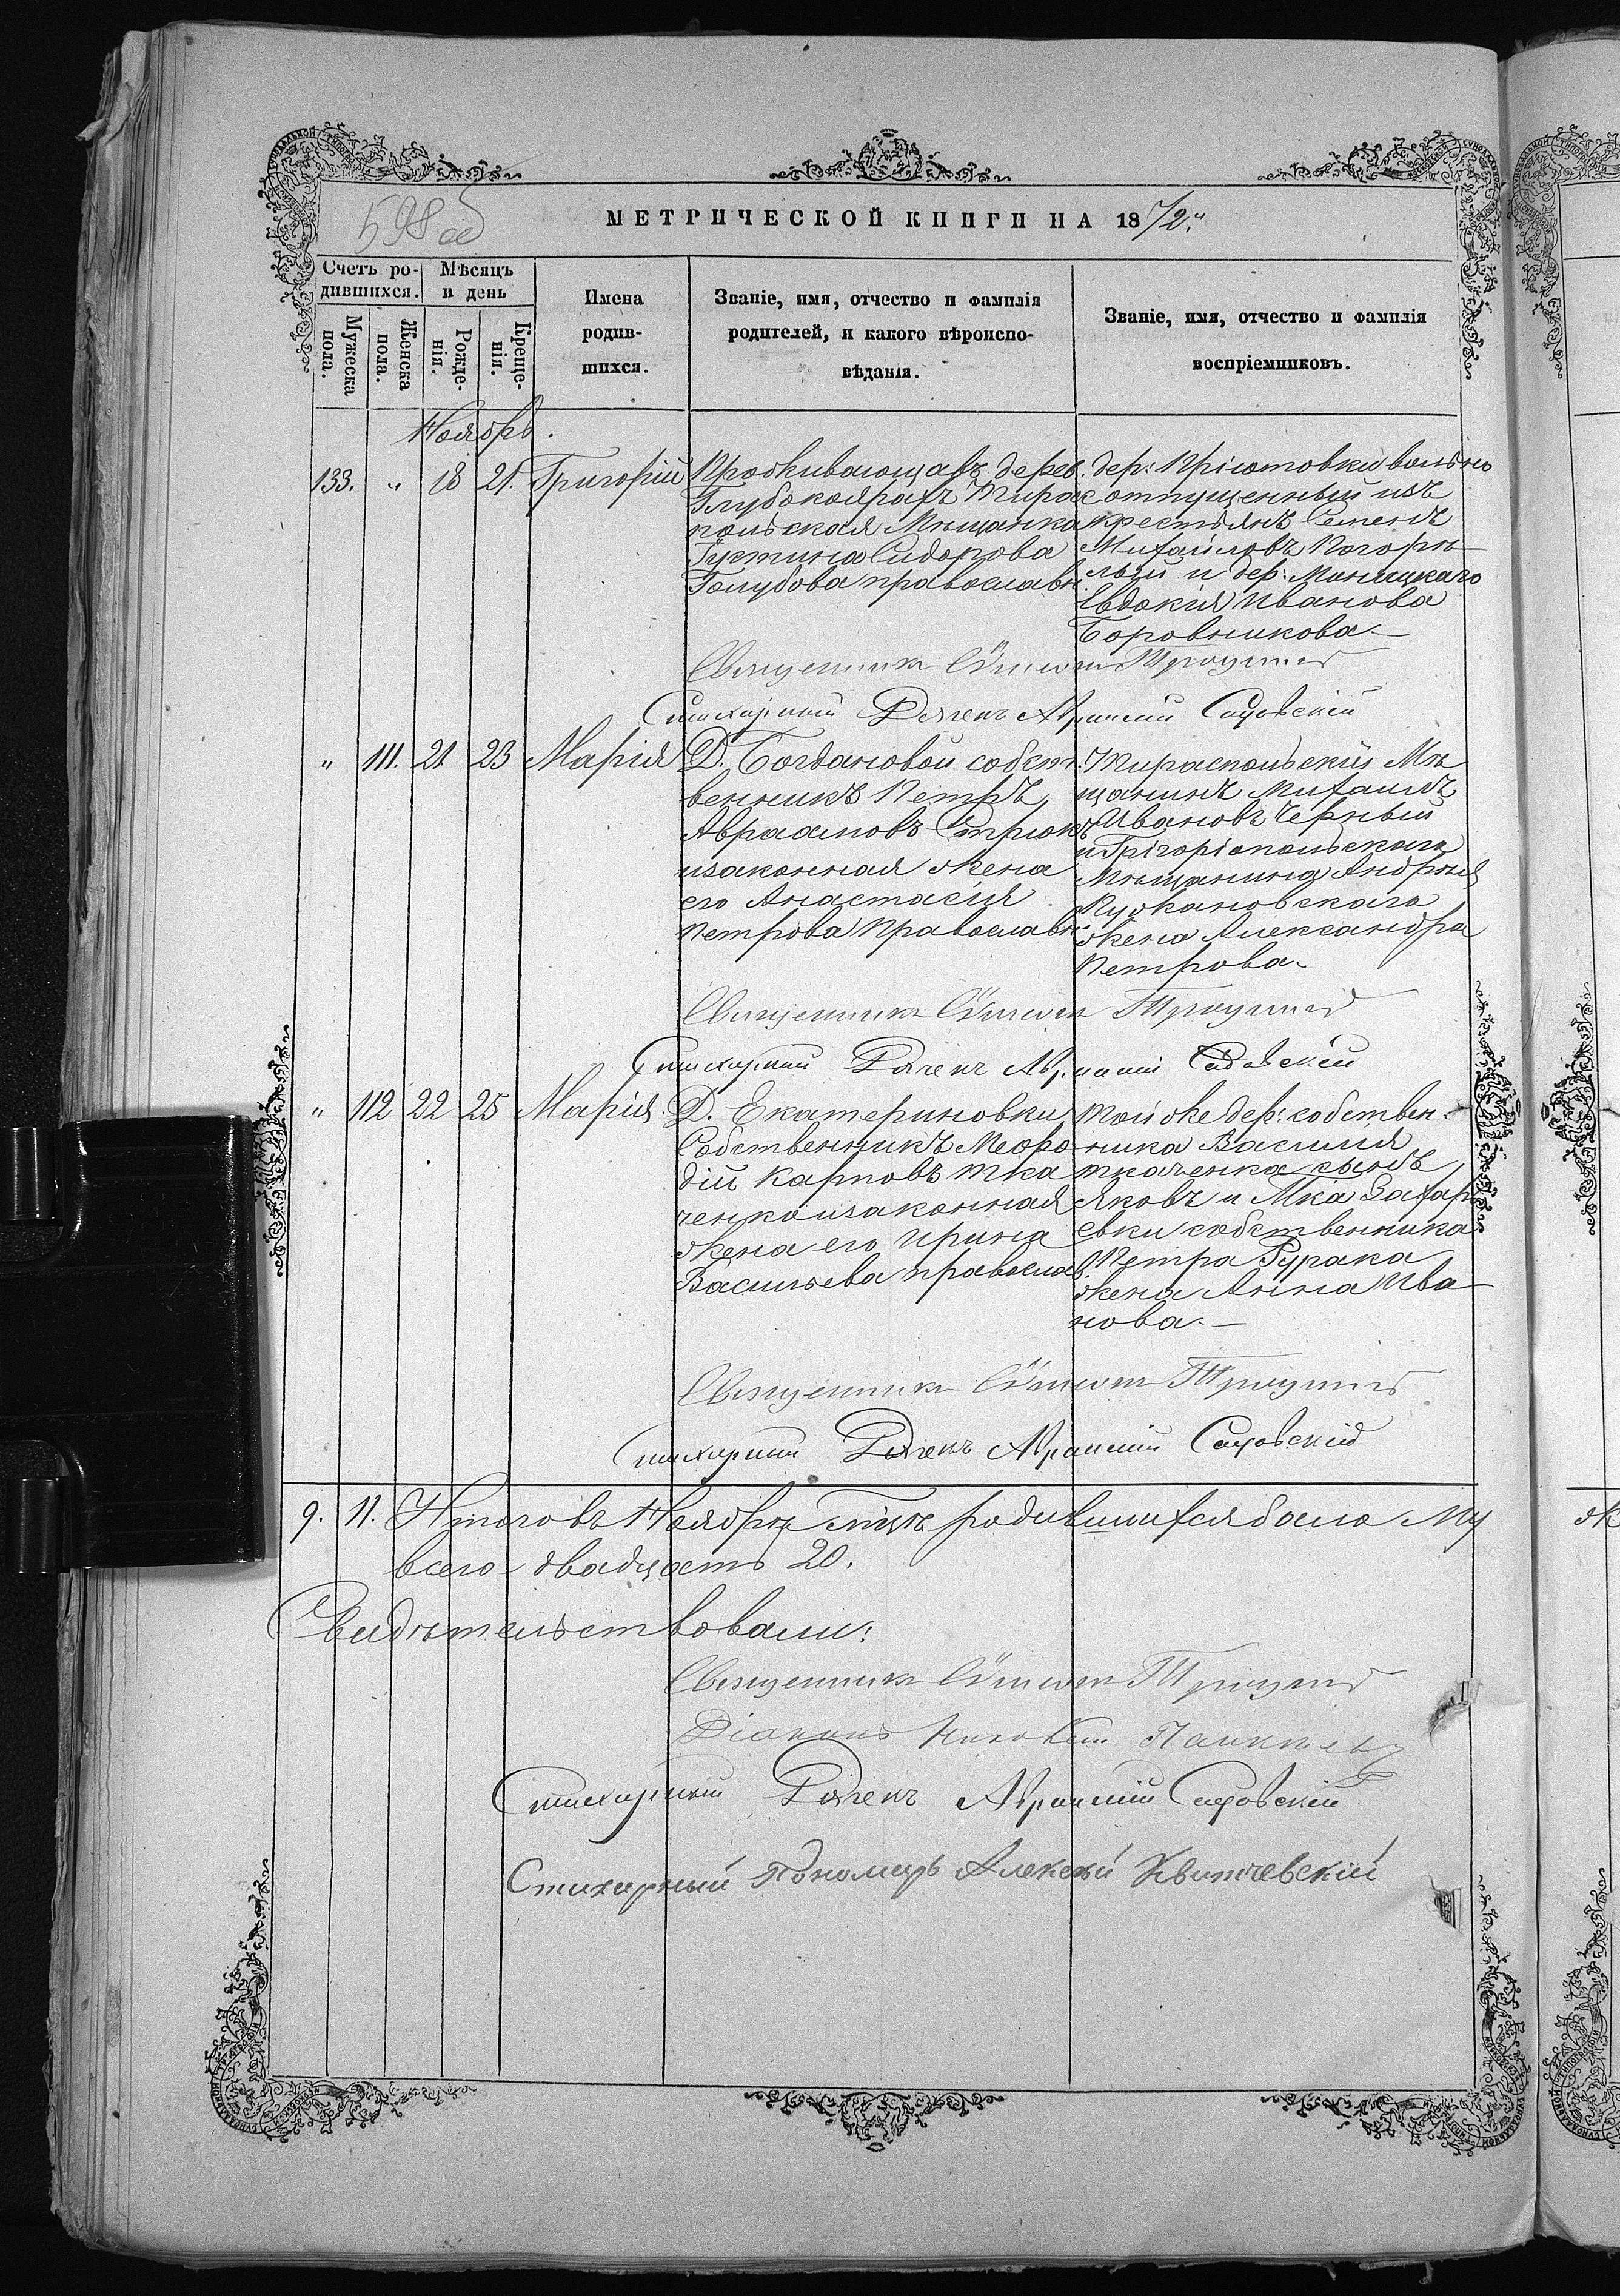 598 об
МЕТРИЧЕСКОЙ КНИГИ НА 1872.
Счетъ ро-
дившихся.
Мѣсяцъ
и день
Мужеска
пола.
Женска
пола.
Рожде-
нія.
Креще-
нія.
Имена
родив-
шихся.
Званіе, имя, отчество и фамилія
родителей, и какого вѣроиспо-
вѣданія.
Званіе, имя, отчество и фамилія
воспріемниковъ.
Ноябрь.
133. " 18 21. Григорій
Проживающая въ дерев.
Глубокоярахъ Тирас
польская Мѣщанка
Густина Сидорова
Голубова православн.
дер: Пріютовки вольно
отпущенный изъ
крестьянъ Семенъ
Михайловъ Погорѣ-
лый и дер:
Евдокія Иванова
Боровникова.—
Священникъ
Стихарный Дячекъ Садовскій
" 111. 21. 23 Марія
Д. Богдановой собст-
венникъ Петръ
Авраамовъ Стрюкъ
и законная жена
его Анастасія
Петрова Православн:
Тираспольскій Мѣ
щанинъ Михаилъ
Ивановъ Черный
и Грігоріопольскаго
Мѣщанина Андрея
Пужановскаго
жена Александра
Петрова.
Священникъ
Стихарный Дячекъ Садовскій
" 112 22 25 Марія.
Д. Екатериновки
Собственникъ Меѳо
дій Карповъ Тка
ченко и законная
жена его Ирина
Васильева православ.
той же дер: собствен-
ника Василія
Ткаченка сынъ
Яковъ и Захарь
евки собственника
Петра Гурака
жена Анна Ива-
нова.—
Священникъ
Стихарный Дячекъ Садовскій
9. 11. Итого въ Ноябрѣ родившихся было
всего двадцать 20.
Свидѣтельствовали:
Священникъ
Діаконъ
Стихарный Дячекъ Садовскій
Стихарный Пономарь Алексѣй Квитчевскій